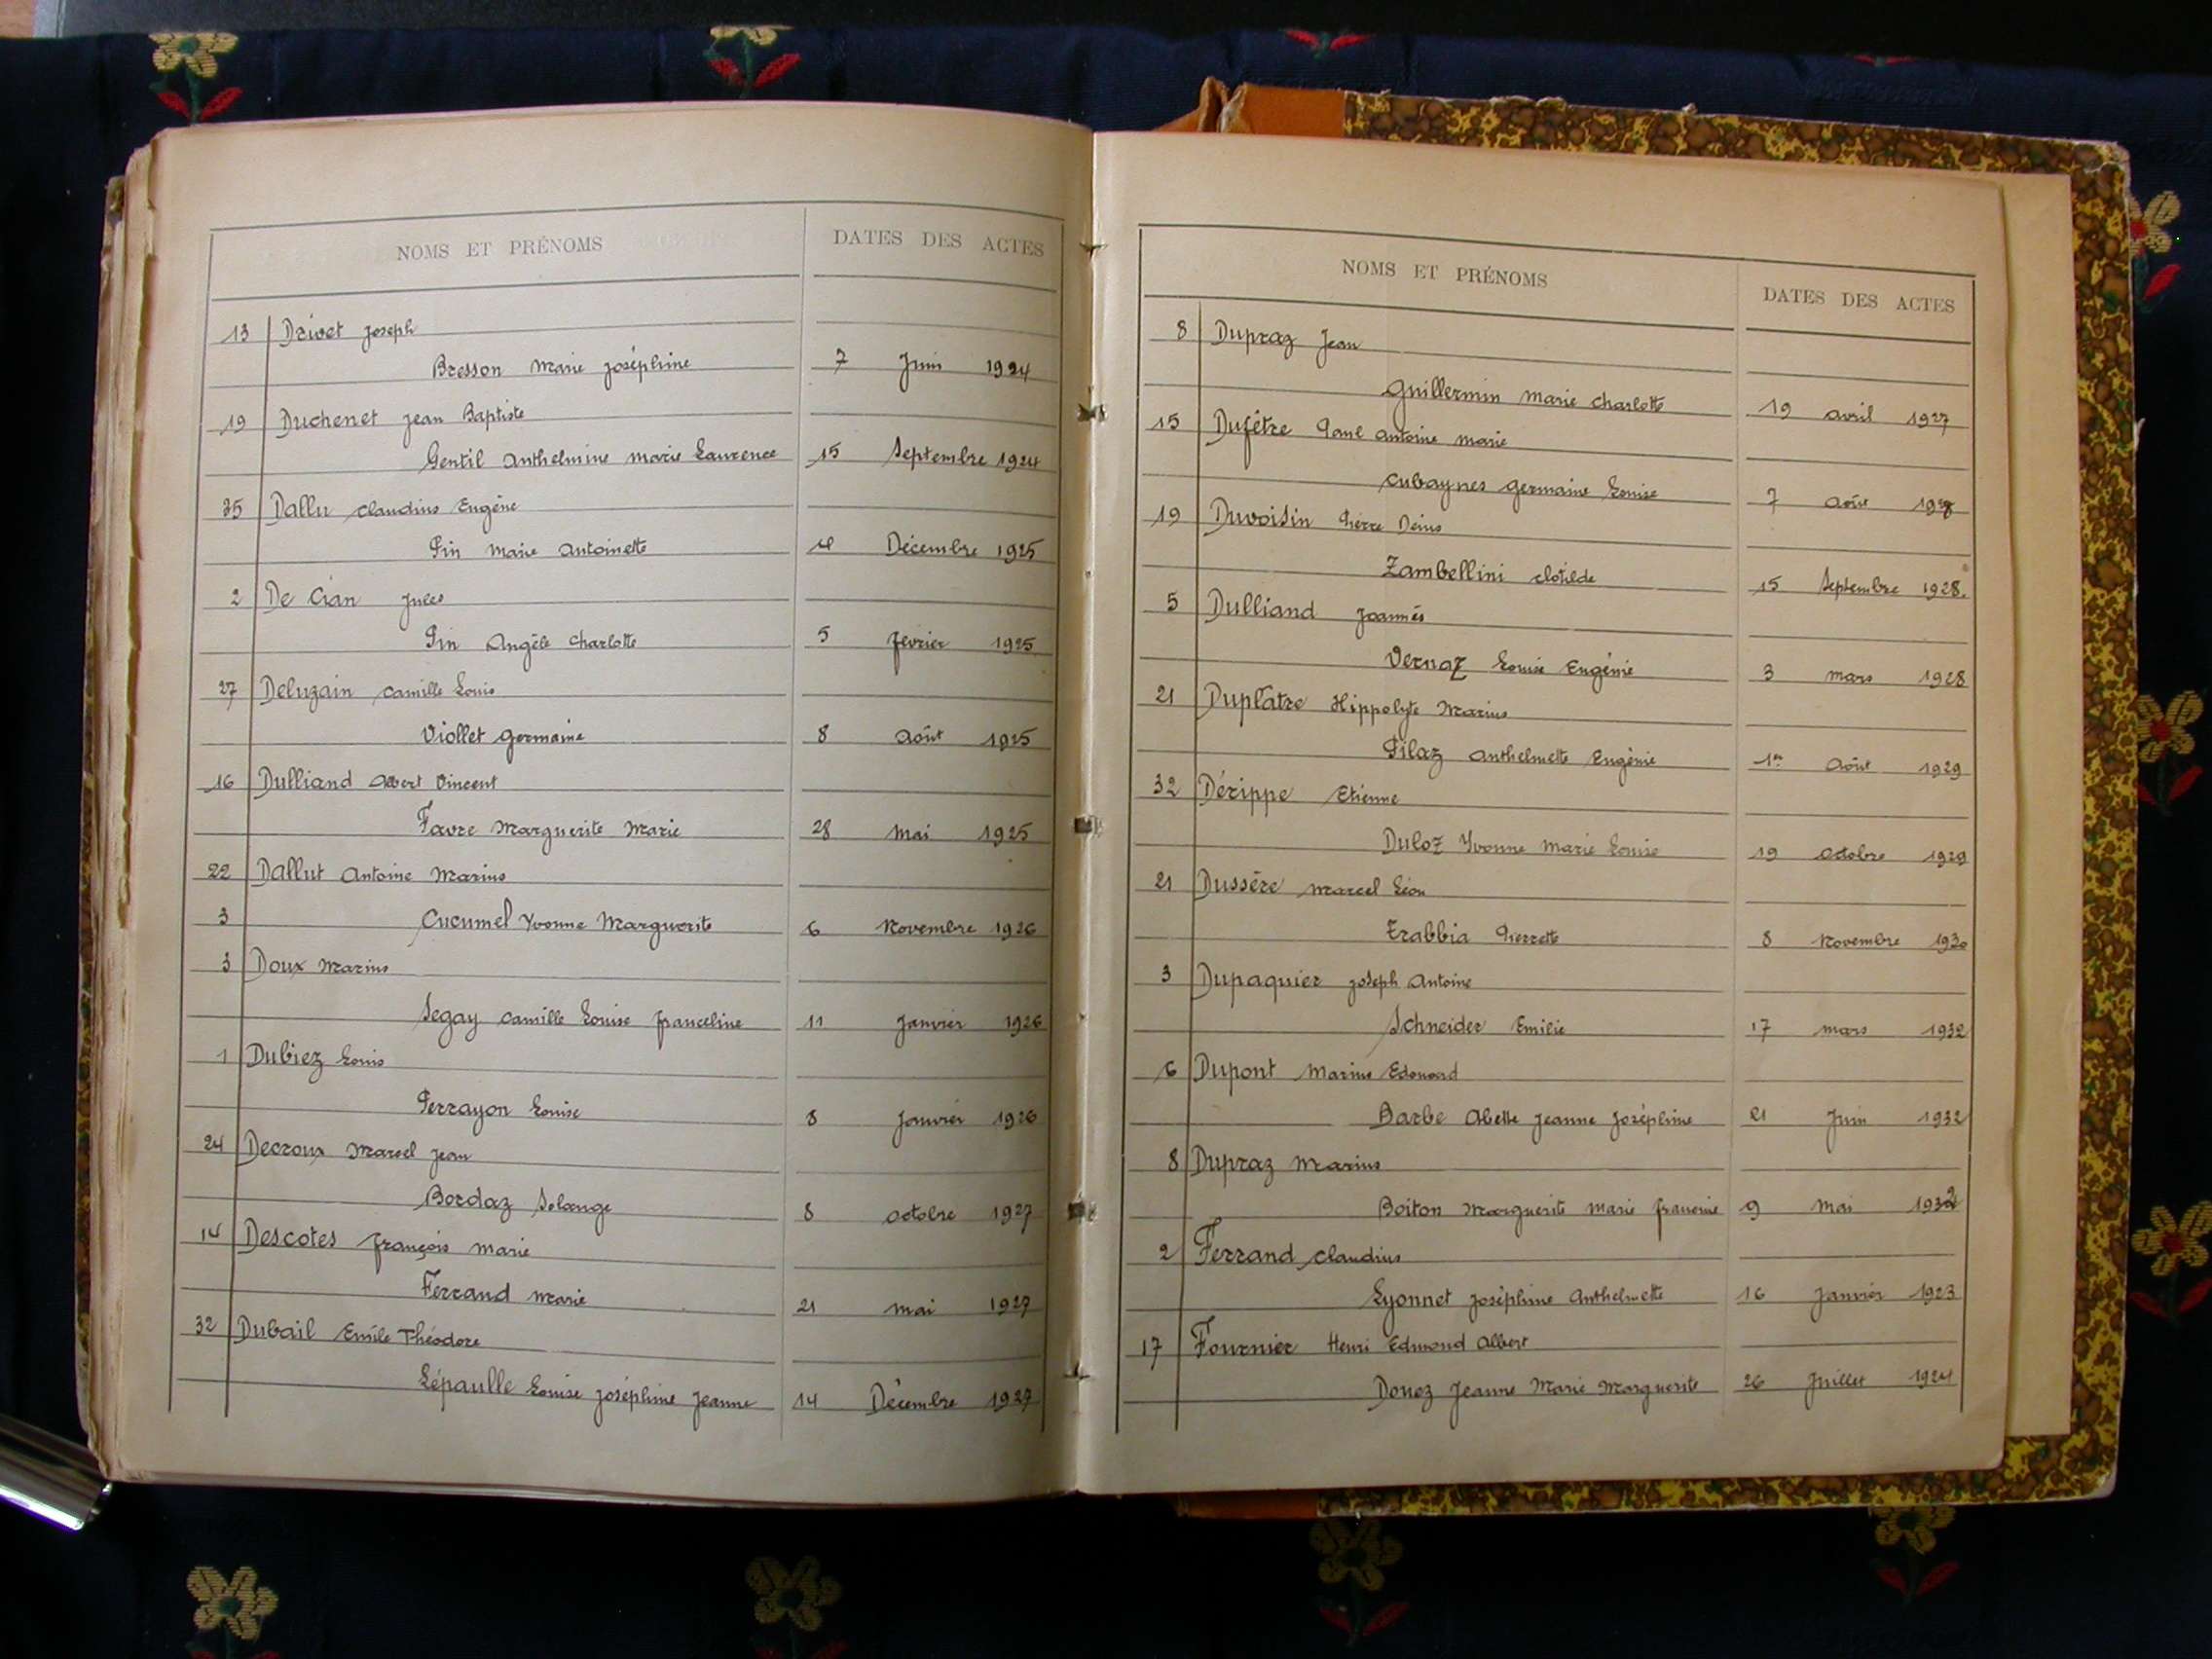 NOMS ET PRÉNOMS DATES DES ACTES
13 Drivet Joseph
Bresson Marie Joséphine 7 Juin 1924
19 Duchenet Jean Baptiste
Gentil Anthelmine Marie Laurence 15 Septembre 1924
35 Dallu Claudius Eugène
Pin Marie Antoinette Décembre 1925
2 De Cian Jules
Pin Angèle Charlotte 5 Février 1925
27 Deluzain Camille Louis
Viollet Germaine 8 Août 1925
16 Dulliand Albert Vincent
Favre Marguerite Marie 28 Mai 1925
22 Dallut Antoine Marius
3 Cucumel Yvonne Marguerite 6 Novembre 1926
3 Doux Marius
Segay Camille Louise Franceline 11 Janvier 1926
1 Dubiez Louis
Perrayon Louise 8 Janvier 1926
24 Decroux Marcel Jean
Bordaz Solange 8 Octobre 1927
14 Descotes François Marie
Ferrand Marie 21 Mai 1927
32 Dubail Emile Théodore
Lépaulle Louise Joséphine Jeanne 14 Décembre 1927
NOMS ET PRÉNOMS DATES DES ACTES
8 Dupraz Jean
Guillermin Marie Charlotte 19 Avril 1927
15 Dufêtre Paul Antoine Marie
Cubaynes Germaine Louise 7 Août
19 Duvoisin Pierre Denis
Zambellini Clotilde 15 Septembre 1928.
5 Dulliand Joannès
Vernaz Louise Eugénie 3 Mars 1928
21 Duplâtre Hippolyte Marius
Pilaz Anthelmette Eugénie 1er Août 1929
32 Dérippe Etienne
Duloz Yvonne Marie Louise 19 Octobre 1929
21 Dussère Marcel Léon
Trabbia Pierrette 8 Novembre 1930
3 Dupaquier Joseph Antoine
Schneider Emilie 17 Mars 1932
6 Dupont Marius Edouard
Barbe Abelle Jeanne Joséphine 21 Juin 1932
8 Dupraz Marius
Boiton Marguerite Marie Francine 9 Mai 1932
2 Ferrand Claudius
Lyonnet Joséphine Anthelmette 16 Janvier 1923
17 Fournier Henri Edmond Albert
Donez Jeanne Marie Marguerite 26 Juillet 1924